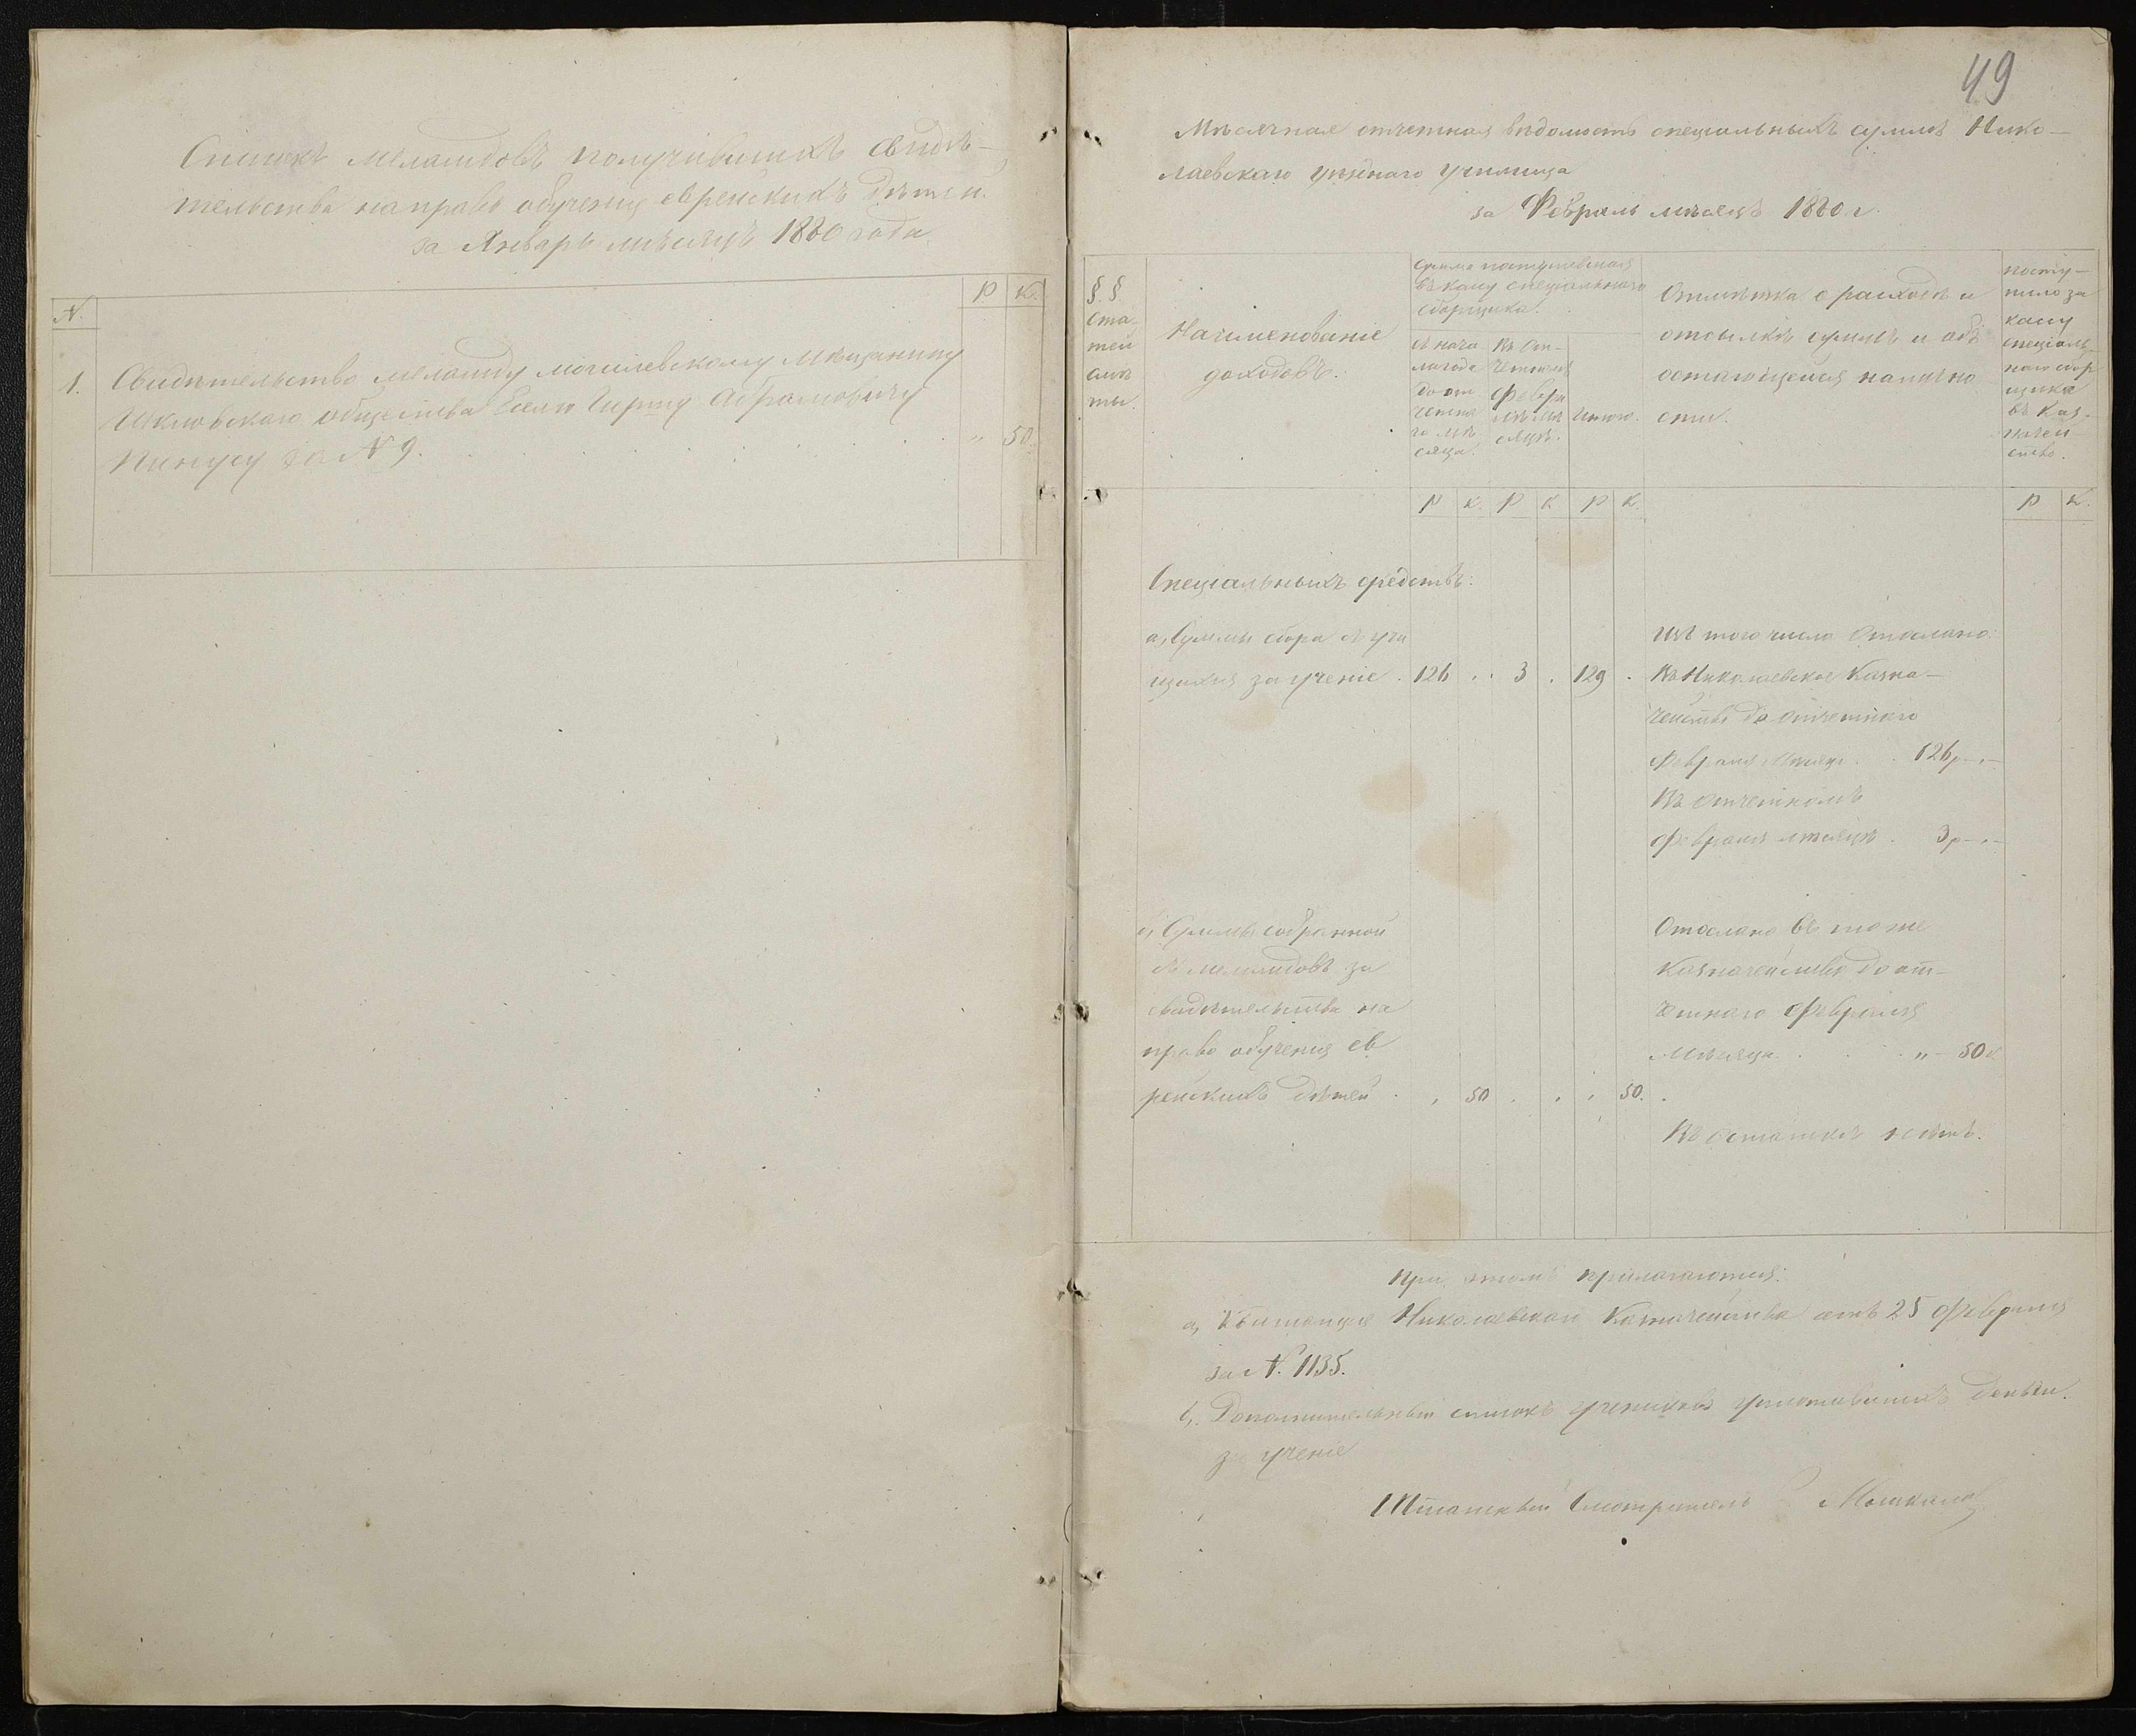 Списокъ меламдовъ получившихъ свидѣ-
тельства на право обученія еврейскихъ дѣтей.
за Январь мѣсяцъ 1880 года
№.
Р
К.
1.
Свидѣтельство меламду могилевскому мѣщанину
Шкловскаго общества Абрамовичу
Пинусу за № 9.
"
50.
49
Мѣсячная отчетная вѣдомость спеціальныхъ суммъ Нико-
лаевскаго уѣзднаго училища
за Февраль мѣсяцъ 1880 г.
§.§.
ста-
тей
смѣ
ты.
Наименованіе
доходовъ.
Сумма поступившая
въ кассу спеціальнаго
сборщика.
съ нача
ла года
до от
четна
го мѣ-
сяца.
Въ от-
четномъ
февра
лѣ мѣ
сяцѣ.
Итого.
Отмѣтка о расходѣ и
отсылкѣ суммъ и объ
остающейся налично
сти.
посту-
пило за
кассу
спеціаль-
наго сбор
щика
въ каз-
начей
ство.
Р К. Р К Р К.
Р К.
Спеціальныхъ средствъ:
а, Суммы сбора съ уча
щихся за ученіе . 126 . . 3 . 129 .
Изъ того числа отослано:
Въ Николаевское Казна-
чейство до отчетнаго
Февраля мѣсяца . . 126 р - " -
Въ отчетномъ
Февралѣ мѣсяцѣ . 3 р - " -
б, Суммы собранной
съ меламдовъ за
свидѣтельства на
право обученія ев
рейскихъ дѣтей . , 50 . . , 50.
Отослано въ тоже
казначейство до от-
четнаго Февраля
мѣсяца . . . " - 50 к
Въ остаткѣ нѣтъ.
При этомъ прилагаются:
а, Квитанція Николаевскаго Казначейства отъ 25 Февраля
за №. 1135.
б, Дополнительный списокъ учениковъ уплатившихъ деньги
за ученіе
Штатный Смотритель